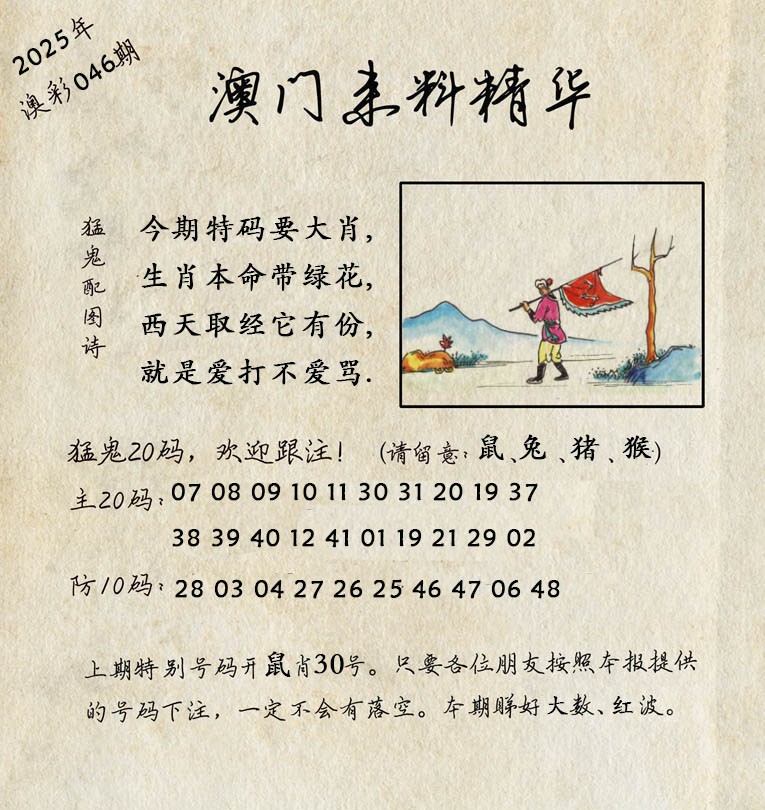 2025年
澳彩046期
澳门来料精华
猛鬼配图诗
今期特码要大肖,
生肖本命带绿花,
西天取经它有份,
就是爱打不爱骂.
猛鬼20码，欢迎跟注！（请留意：鼠、兔、猪、猴）
主20码：07 08 09 10 11 30 31 20 19 37
38 39 40 12 41 01 19 21 29 02
防10码：28 03 04 27 26 25 46 47 06 48
上期特别号码开鼠肖30号。只要各位朋友按照本报提供
的号码下注，一定不会有落空。本期睇好大数、红波。